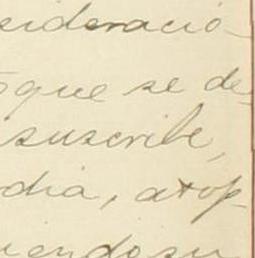 sideració-
oque se de-
suscribe,
dia, atop-
iendosu